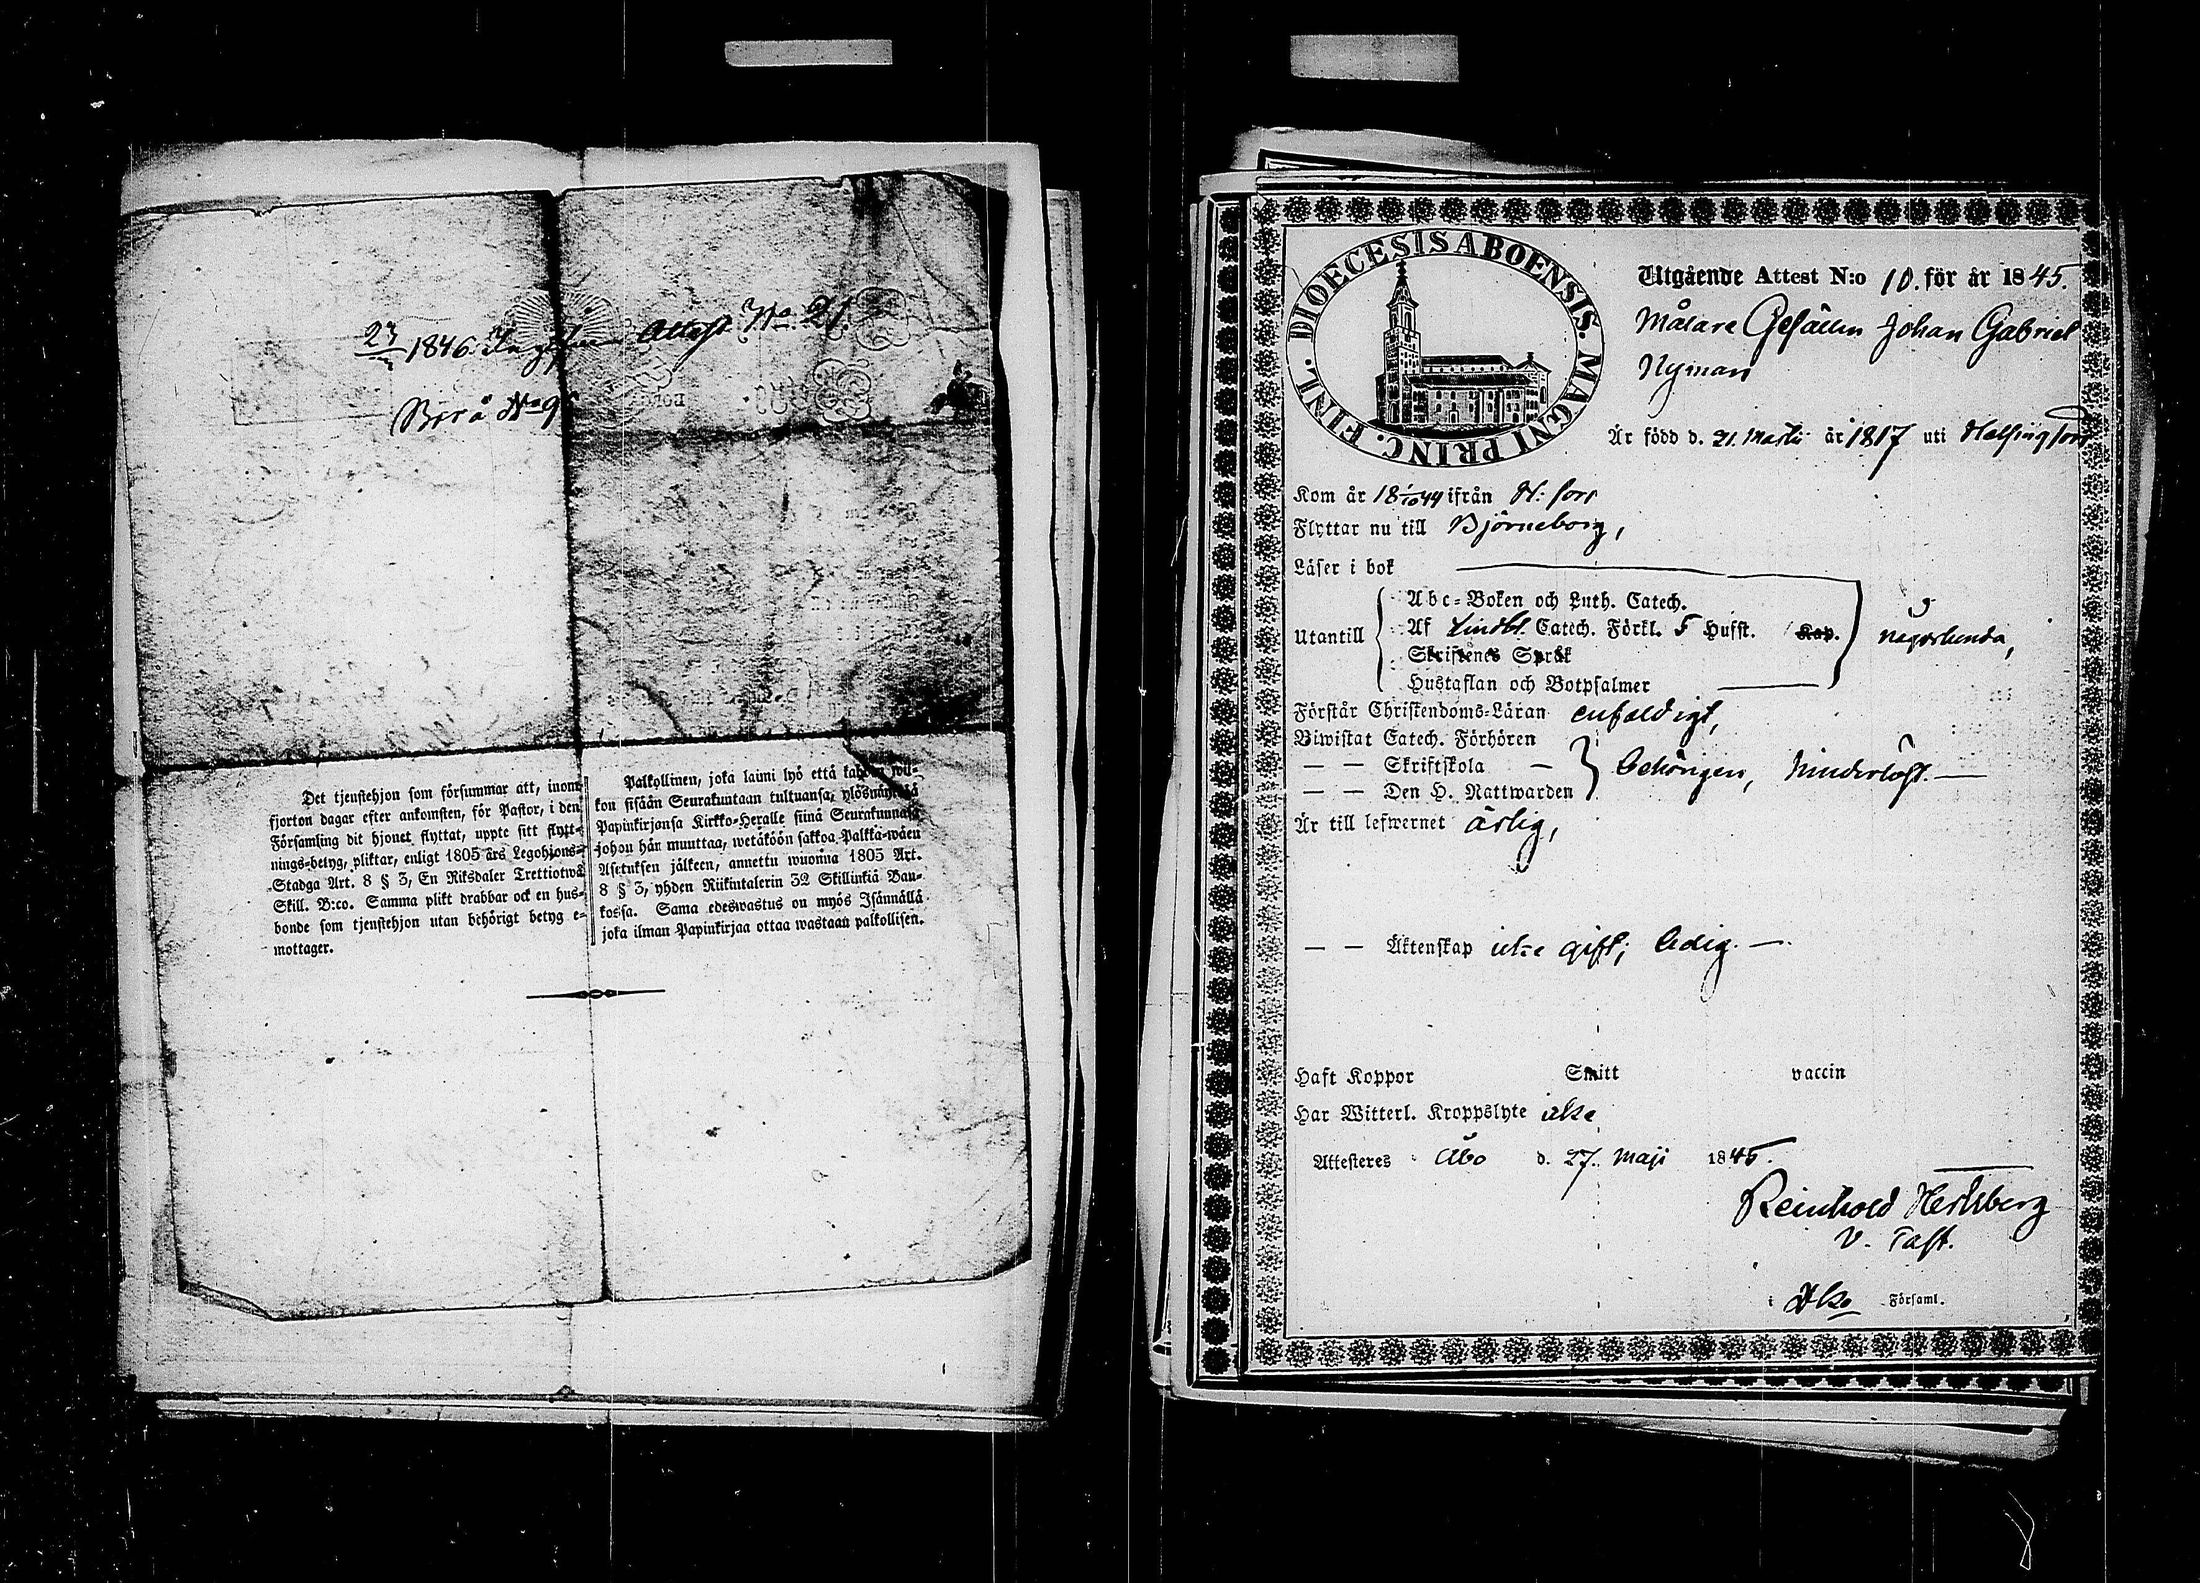 23 1846. Attest No 21.
No 9
Det tjenstehjon som försummar att, inom
fjorton dagar efter ankomsten, för Pastor, i den
Församling dit hjonet flyttat, uppte sitt flytt-
nings-betyg, pliktar, enligt 1805 års Legohjons-
Stadga Art. 8 § 3, En Riksdaler Trettiotwå
Skill. B:co. Samma plikt drabbar ock en hus-
bonde som tjenstehjon utan behörigt betyg e-
mottager.
Palkollinen, joka laimi lyö että kahden wii-
kon sisään Seurakuntaan tultuansa, ylösnäyttää
Papinkirjansa Kirkko-Herralle siinä Seurakunnasa
johou hän muuttaa, wetäköön sakkoa Palkka-wäen
Asetuksen jälkeen, annettu wuonna 1805 Art.
8 § 3, yhden Riikintalerin 32 Skillinkiä Ban-
kossa. Sama edeswastus on myös Isännällä
joka ilman Papinkirjaa ottaa wastaan palkollisen.
DIOECESIS ABOENSIS. MAGNI PRINC. FINL.
Utgående Attest N:o 10. för år 1845.
Målare Gesällen Johan Gabriel
Nyman
Är född d. 21. Martii år 1817 uti Helsingfors
Kom år 18 1/10 44 ifrån H:fors
Flyttar nu till Björneborg,
Läser i bok
Abc-Boken och Luth. Catech.
Utantill Af Lindbl. Catech. Förkl. 5 Hufst. Kap. någorlunda,
Skriftenes Språk
Hustaflan och Botpsalmer
Förstår Christendoms-Läran enfaldigt,
Biwistat Catech. Förhören
— — Skriftskola — behörigen, hinderlöst. —
— — Den H. Nattwarden
Är till lefwernet ärlig,
— — Äktenskap icke gift; ledig. —
Haft Koppor Smitt vaccin
Har Witterl. Kroppslyte icke
Attesteres Åbo d. 27. Maji 1845.
Reinhold Hertzberg
V. Past.
i Församl.